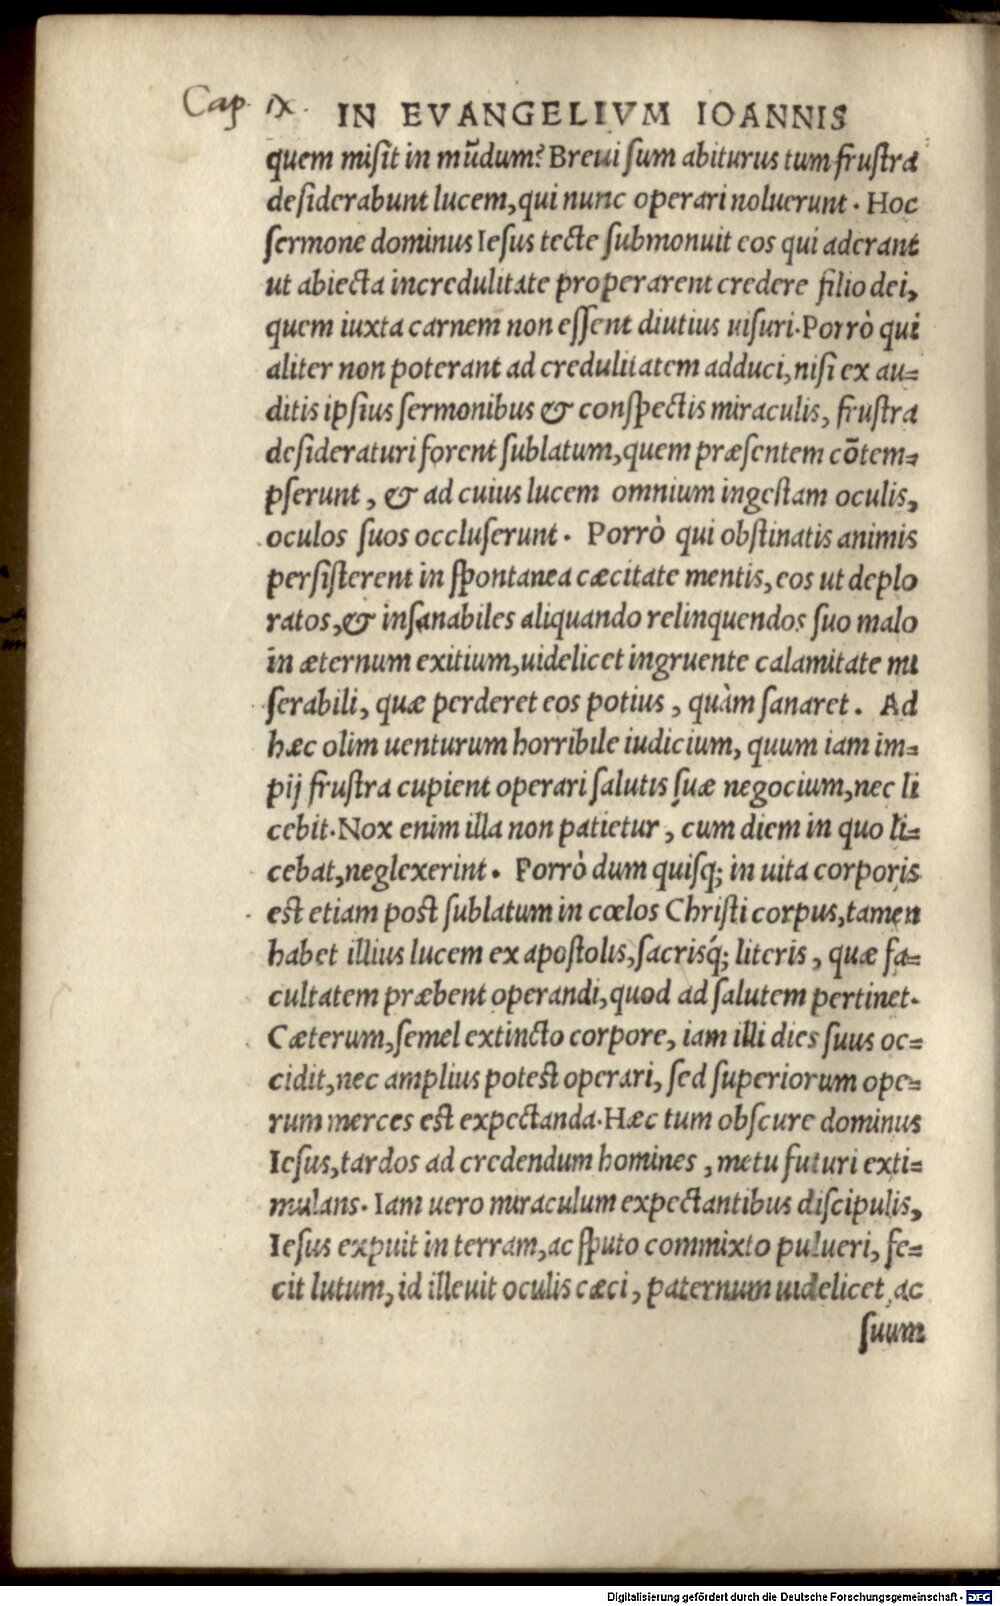 Cap. ix.
IN EVANGELIVM IOANNIS
quem misit in mũdum? Breui sum abiturus tum frustra
desiderabunt lucem, qui nunc operari noluerunt. Hoc
sermone dominus Iesus tecte submonuit eos qui aderant
ut abiecta incredulitate properarent credere filio dei,
quem iuxta carnem non essent diutius uisuri. Porrò qui
aliter non poterant ad credulitatem adduci, nisi ex au=
ditis ipsius sermonibus & conspectis miraculis, frustra
desideraturi forent sublatum, quem præsentem cõtem=
pserunt, & ad cuius lucem omnium ingestam oculis,
oculos suos occluserunt. Porrò qui obstinatis animis
persisterent in spontanea cæcitate mentis, eos ut deplo
ratos, & insanabiles aliquando relinquendos suo malo
in æternum exitium, uidelicet ingruente calamitate mi
serabili, quæ perderet eos potius, quàm sanaret. Ad
hæc olim uenturum horribile iudicium, quum iam im=
pij frustra cupient operari salutis suæ negocium, nec li
cebit. Nox enim illa non patietur, cum diem in quo li=
cebat, neglexerint. Porrò dum quisq; in uita corporis
est etiam post sublatum in cœlos Christi corpus, tamen
habet illius lucem ex apostolis, sacrisq́; literis, quæ fa=
cultatem præbent operandi, quod ad salutem pertinet.
Cæterum, semel extincto corpore, iam illi dies suus oc=
cidit, nec amplius potest operari, sed superiorum ope=
rum merces est expectanda. Hæc tum obscure dominus
Iesus, tardos ad credendum homines, metu futuri exti=
mulans. Iam uero miraculum expectantibus discipulis,
Iesus expuit in terram, ac sputo commixto pulueri, fe=
cit lutum, id illeuit oculis cæci, paternum uidelicet ac
suum
Digitalisierung gefördert durch die Deutsche Forschungsgemeinschaft - DFG